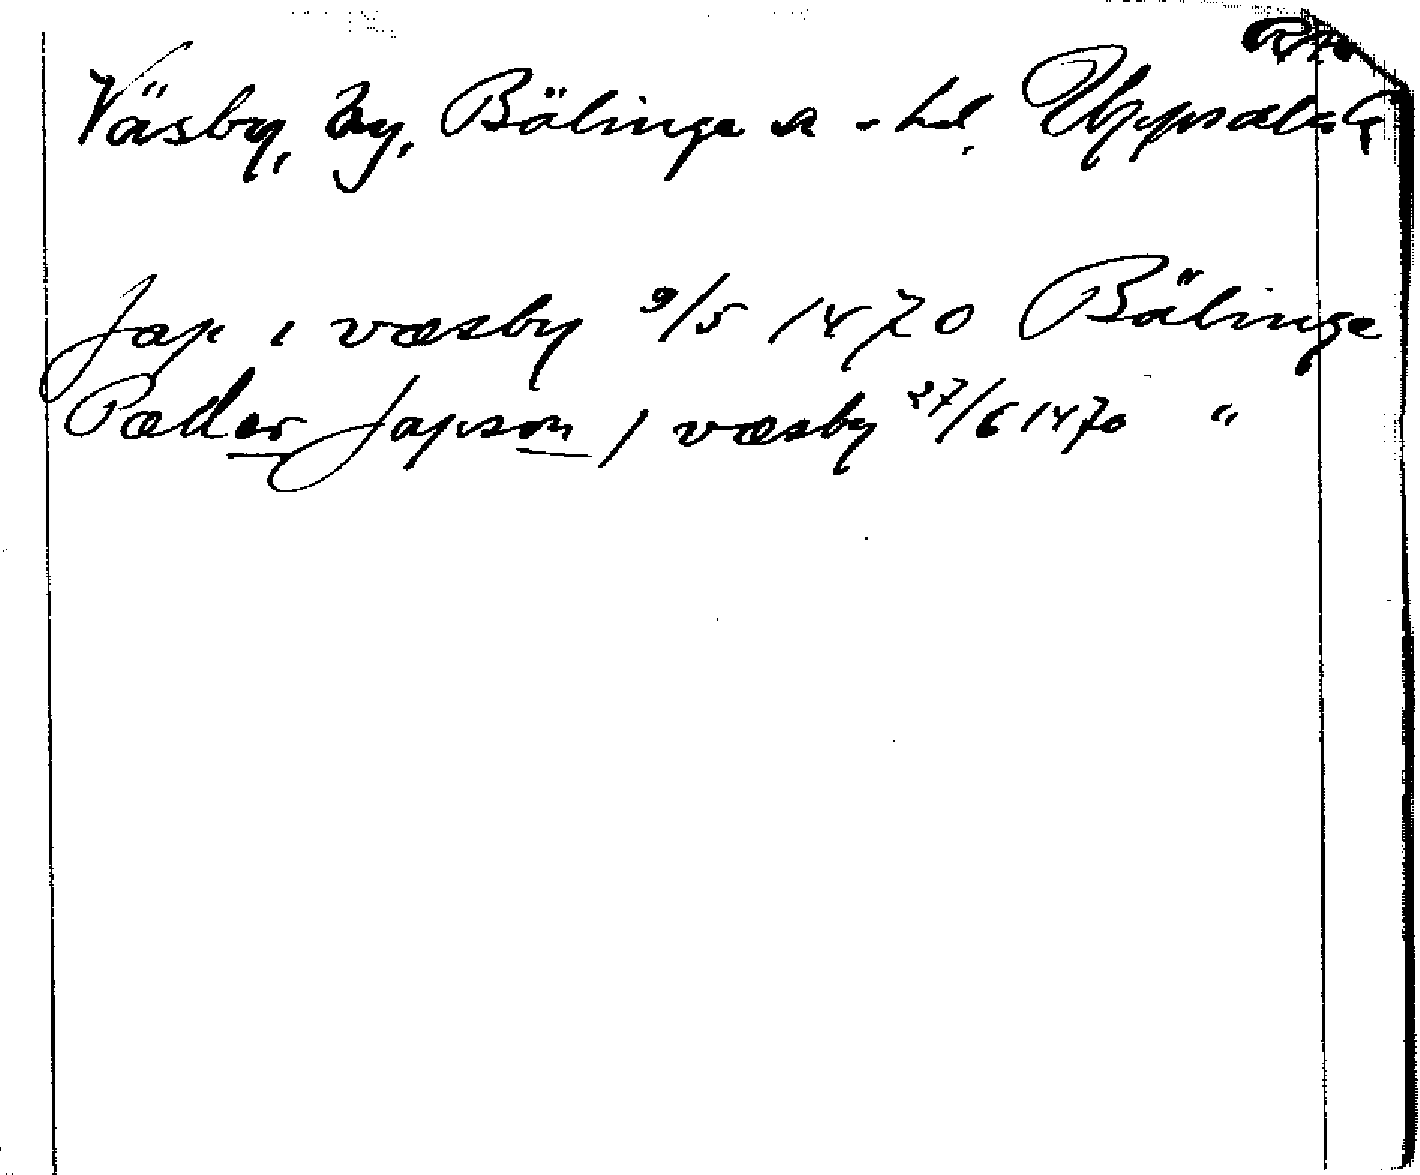 Väsby, by, Bälinge sn - hd, Uppsala l
Jap i væsby 9/5 1470 Bälinge
Pædher Japson i væsby 27/6 1470 "